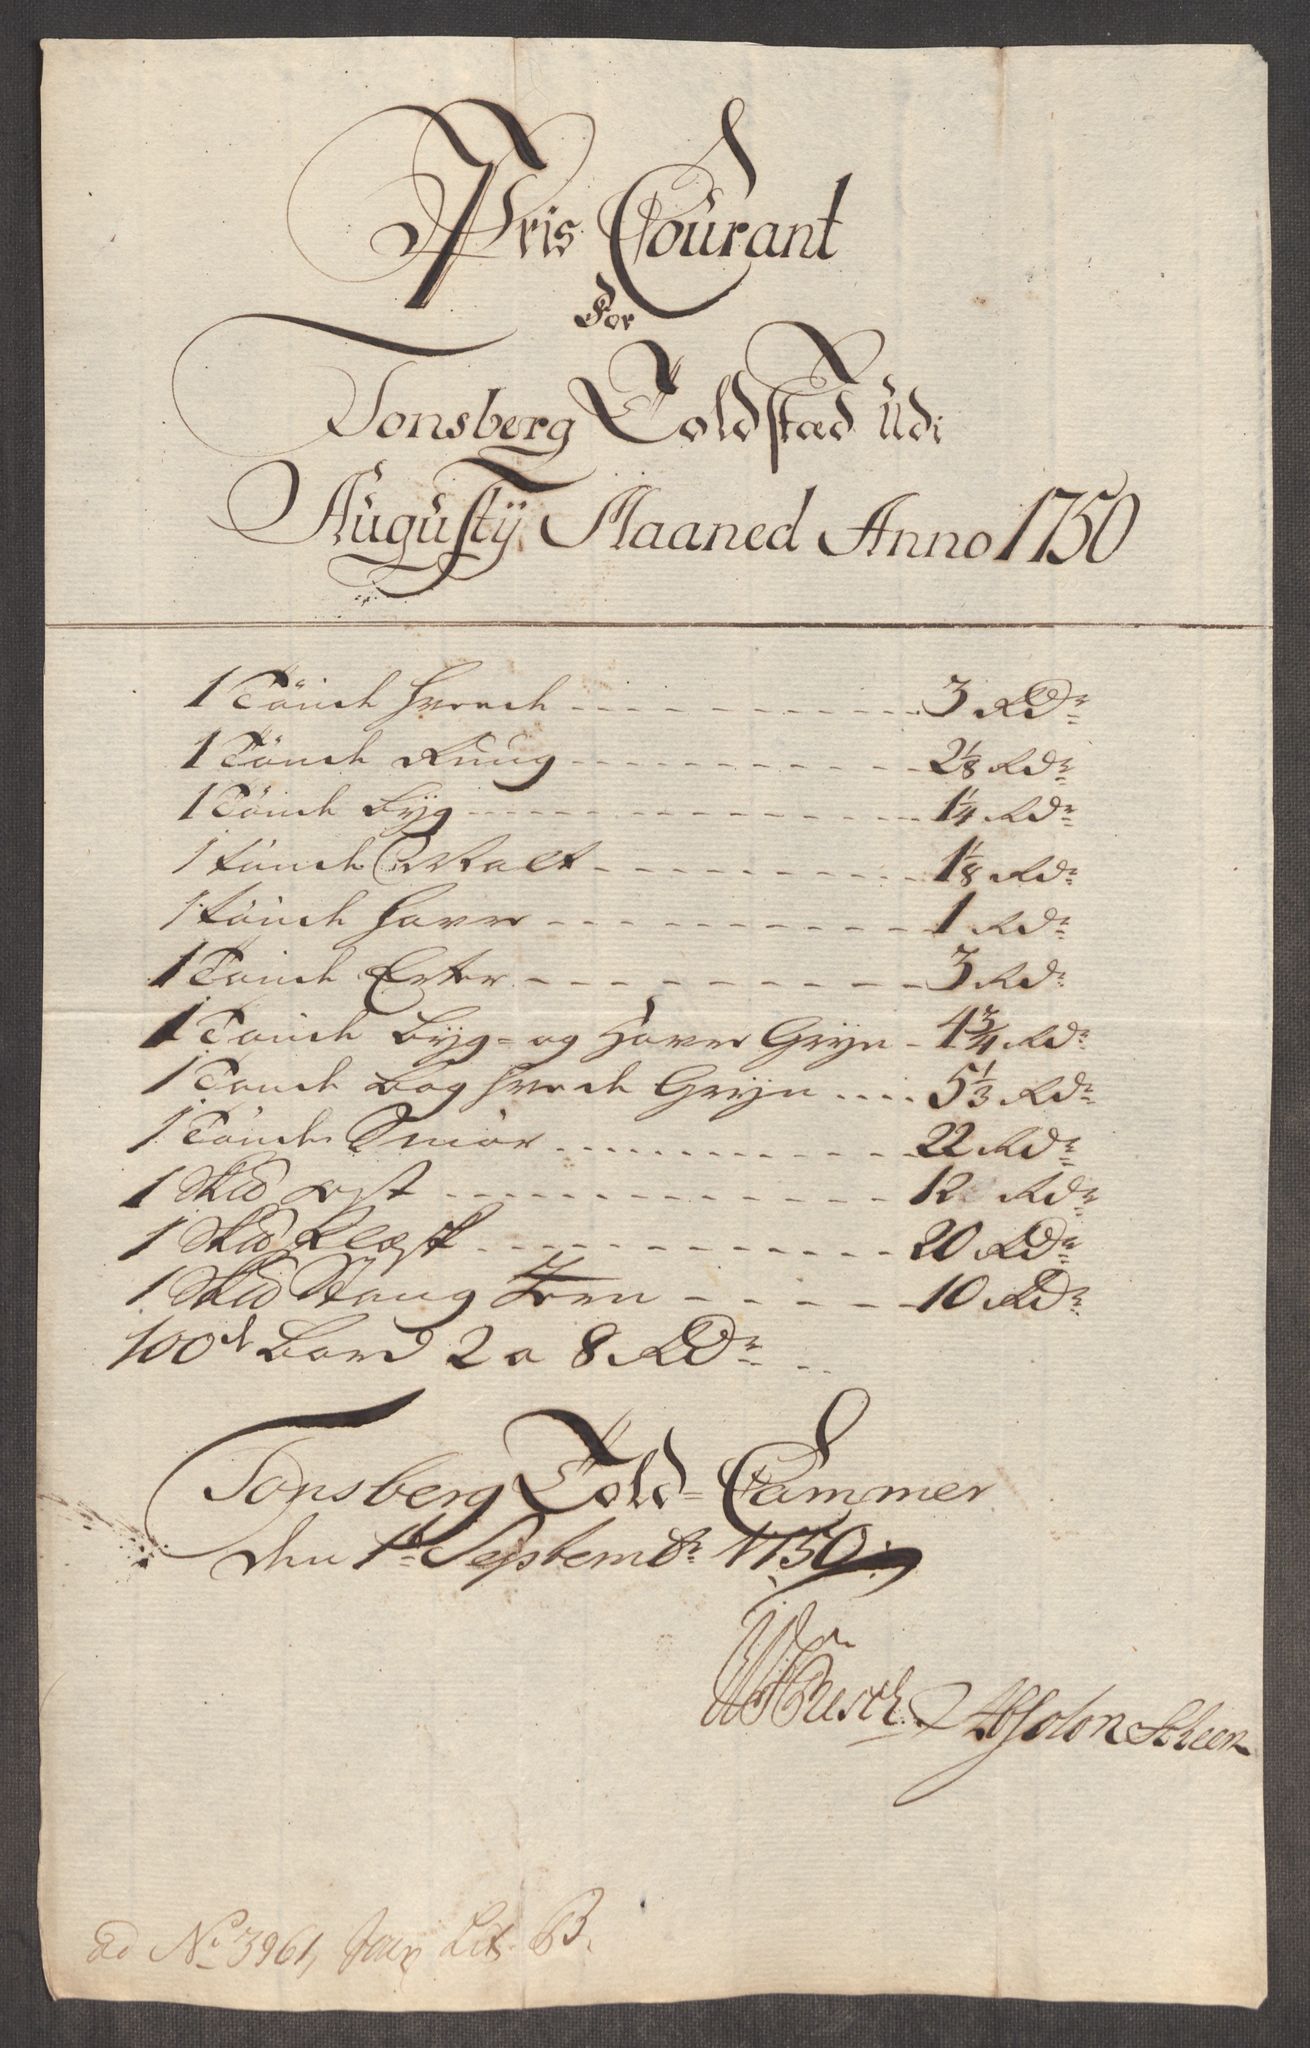 Pris Courant
For
Tonsberg Toldstæd Udi
Augusty Maaned Anno 1750
1 Tönde Hvede 3 Rdr
1 Tönde Ruug 2 1/8 Rdr
1 Tönde Byg 1 1/4 Rdr
1 Tönde Malt 1 1/8 Rdr
1 Tönde Haver 1 Rdr
1 Tönde Erter 3 Rdr
1 Tönde Byg- og Haver Gryn 4 3/4 Rdr
1 Tönde Boghvede Gryn 5 1/3 Rdr
1 Tönde Smör 22 Rdr
1 Skd Ost 12 Rdr
1 Skd Flesk 20 Rdr
1 Skd Stang Jern 10 Rdr
100de Bord 2 a 8 Rdr
Tonsberg Told-Cammer
den 1te Septembr 1750
Büsch. Absolon Scheen
Ad No 3961, Lit. B.